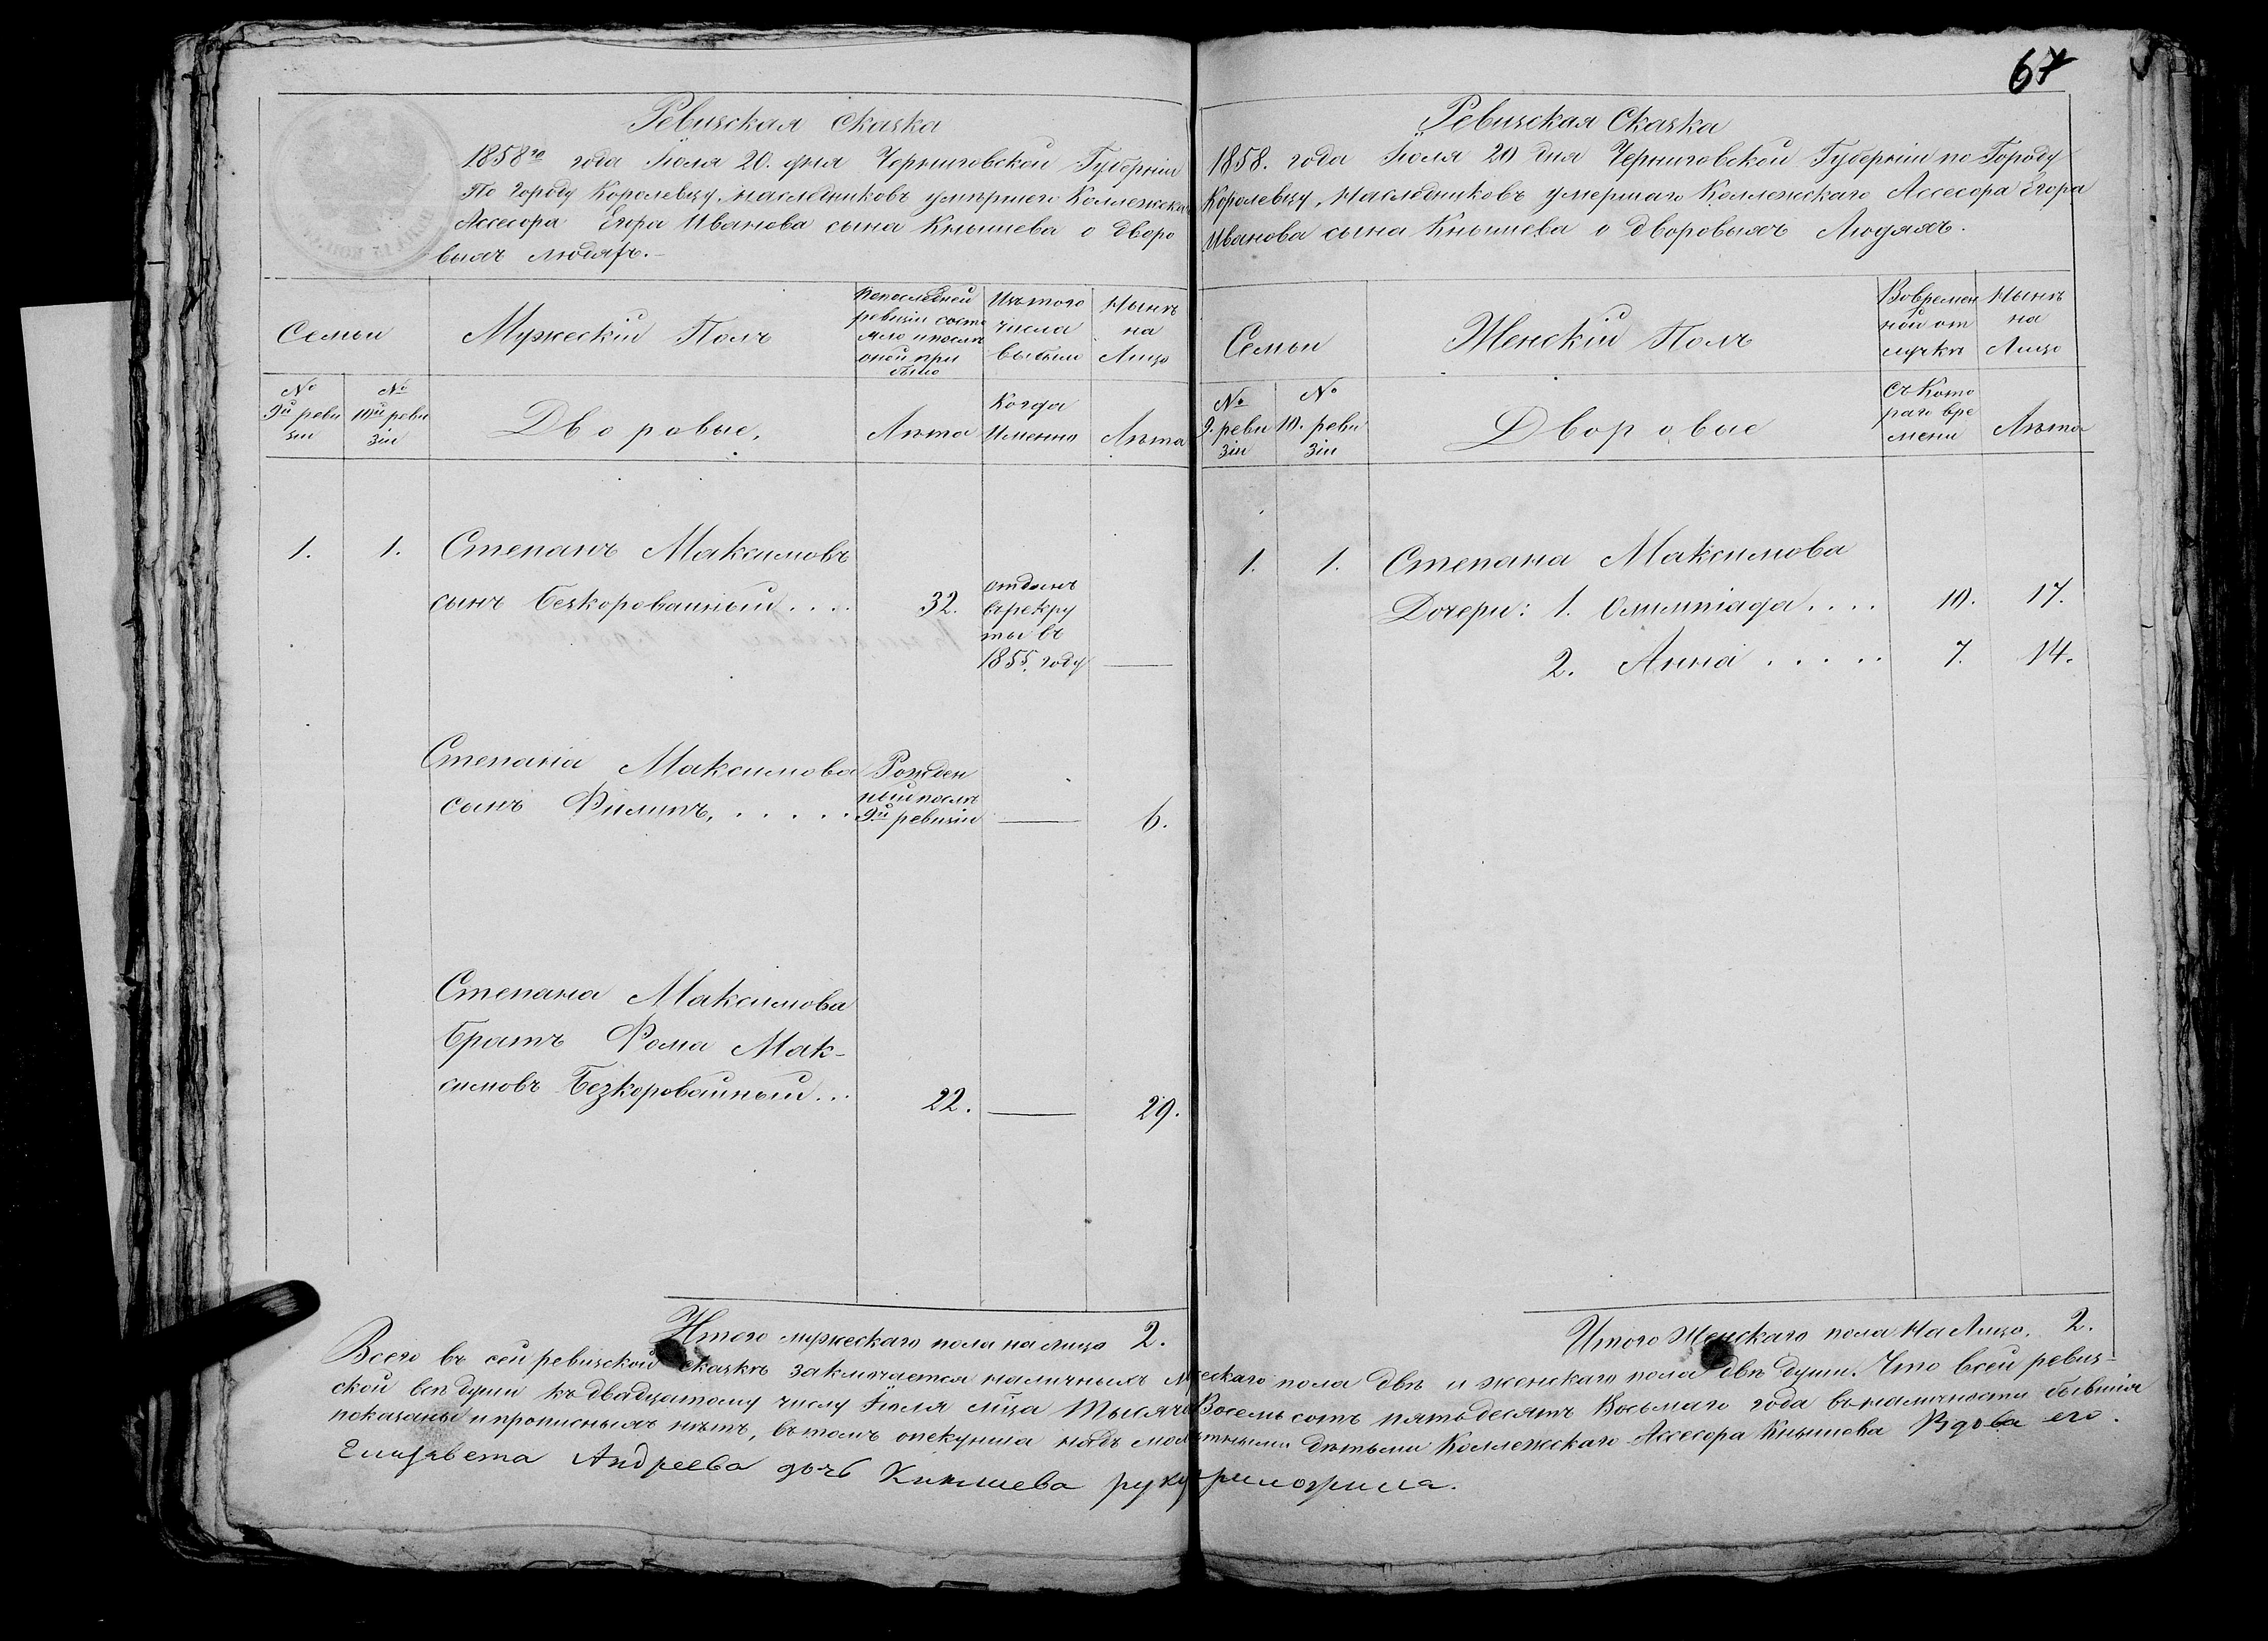 67
Ревизская сказка
1858го года Июля 20. дня Черниговской Губерніи
По городу Королевцу, наследниковъ умершего Коллежска
Ассесора Егора Иванова сына Кнышева о дворо
выхъ людяхъ.
Семьи
Мужескій Полъ
По последней
ревизіи состо
яло и после
оной при
было
Изъ того
числа
выбыли
Нынѣ
на
Лицо
№
9й реви
зіи
№
10й реви
зіи
Дворовые.
Лѣта
Когда
Именно
Лѣта
1. 1. Степанъ Максимовъ
сынъ Безкоровайный.... 32.
отданъ
в рекру
ты въ
1855. году —
Степана Максимова
сынъ Филипъ......
Рожден
ный послѣ
9й ревизіи — 6.
Степана Максимова
братъ Фома Мак-
симовъ Безкоровайный... 22. — 29.
Итого мужескаго пола на лицо 2.
Ревизская Сказка
1858. года Июля 20 дня Черниговской Губерніи по Городу
Королевцу, Наследниковъ умершаго Коллежскаго Ассесора Егора
Иванова сына Кнышева о дворовыхъ Людяхъ.
Семьи
Женскій Полъ
Во времен
ной от
лучкѣ
Нынѣ
на
Лицо
№
9. реви
зіи
№
10. реви
зіи
Дворовые
Съ Кото
раго вре
мени
Лѣта
1. 1. Степана Максимова
Дочери: 1. Олимпіада.... 10. 17.
2. Анна..... 7. 14.
Итого Женскаго пола На Лицо. 2.
Всего въ сей ревизской сказкѣ заключается наличныхъ мужескаго пола двѣ и женскаго пола двѣ души. Что в сей ревиз-
ской всѣ души къ двадцатому числу Июля мѣца Тысяча Восемьсотъ пятьдесятъ Восьмаго года въ наличности бывшія
показаны и прописныхъ нѣтъ, въ томъ опекунша надъ малолѣтными дѣтьми Коллежскаго Ассесора Кнышева Вдова его.
Елизавета Андреева дочь Кнышева руку приложила.